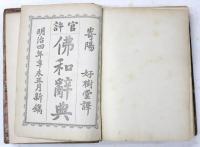 官許
嵜陽
好樹堂譯
佛和辭典
明治四年辛未正月新鐫